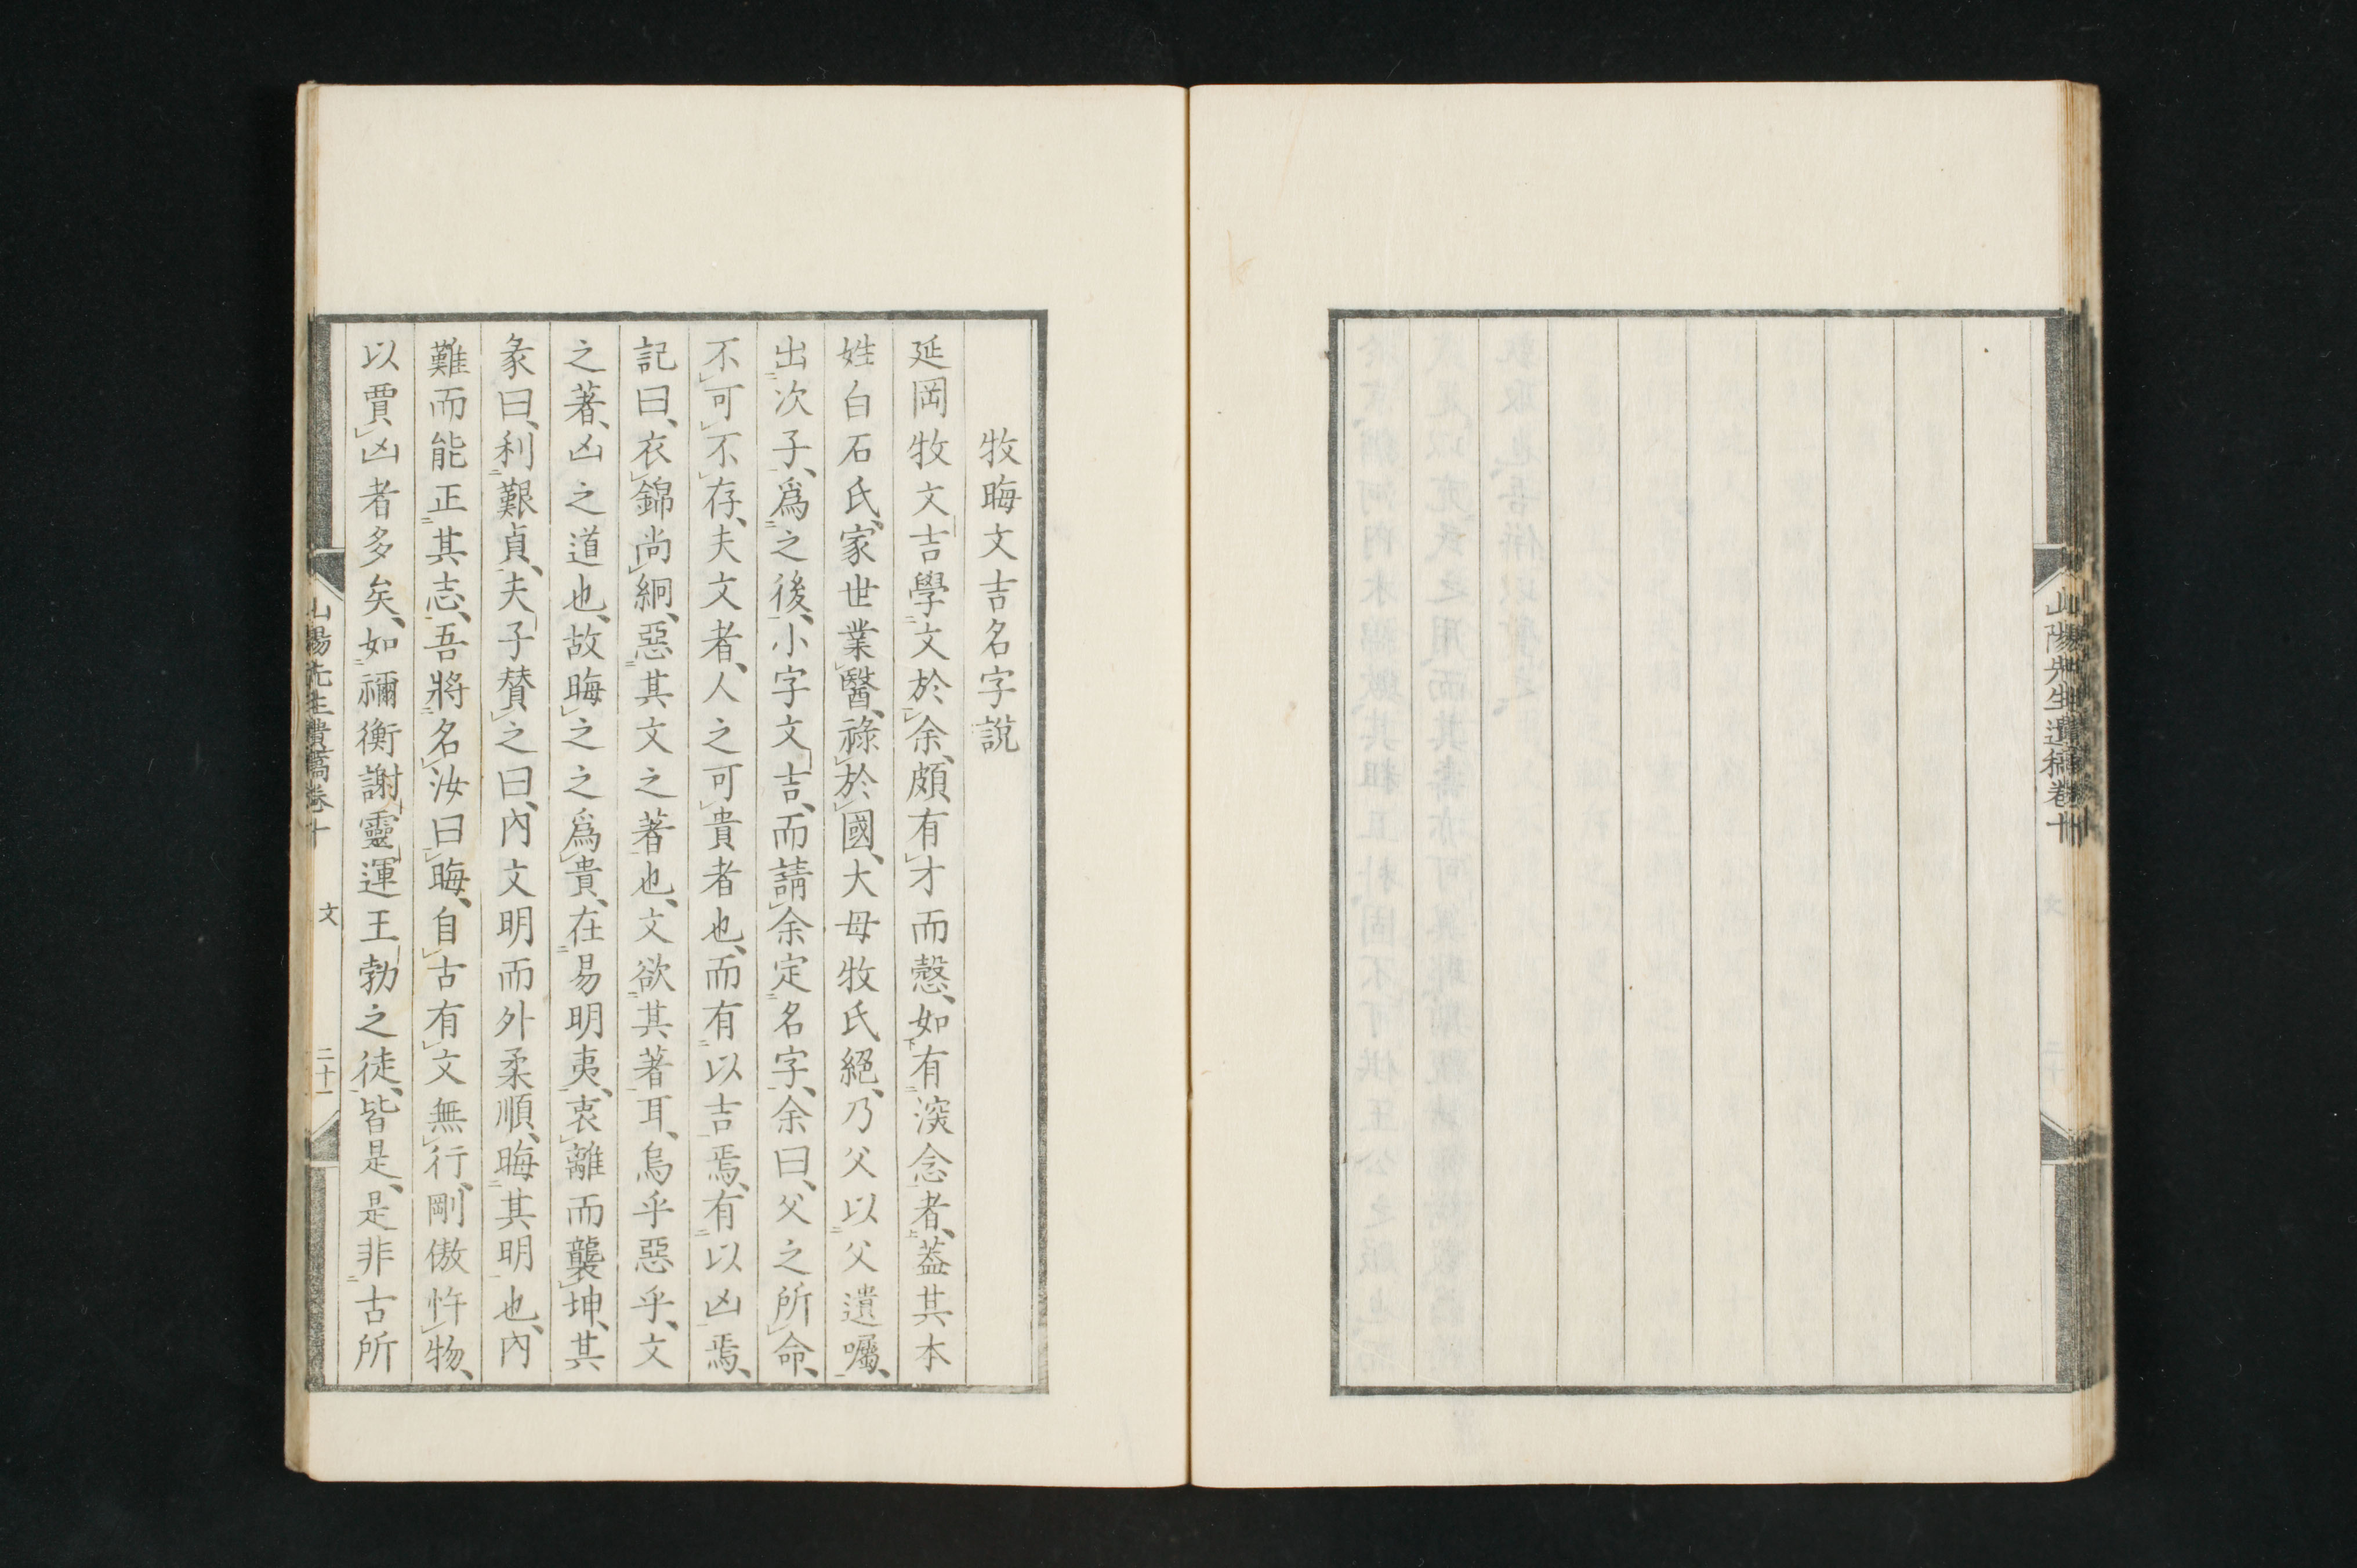 山陽先生遺稿卷十
牧晦文吉名字説
延岡牧文吉學文於余、頗有才而慤、如有深念者、蓋其本
姓白石氏、家世業醫、祿於國、大母牧氏絕、乃父以父遺囑、
出次子、爲之後、小字文吉、而請余定名字、余曰、父之所命、
不可不存、夫文者、人之可貴者也、而有以吉焉、有以凶焉、
記曰、衣錦尚絅、惡其文之著也、文欲其著耳、烏乎惡乎、文
之著、凶之道也、故晦之之爲貴、在易明夷、衷離而襲坤、其
彖曰、利艱貞、夫子賛之曰、內文明而外柔順、晦其明也、內
難而能正其志、吾將名汝曰晦、自古有文無行、剛傲忤物、
以賈凶者多矣、如禰衡謝靈運王勃之徒、皆是、是非古所
山陽先生遺稿卷十 文 二十一